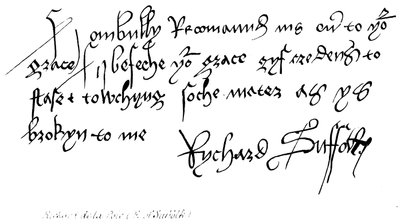 I ombully Recomannd me on to yor
grace I besche yor grace gyf credens to
towchyng soche mater as ys
brokyn to me
Rychard Suffolk